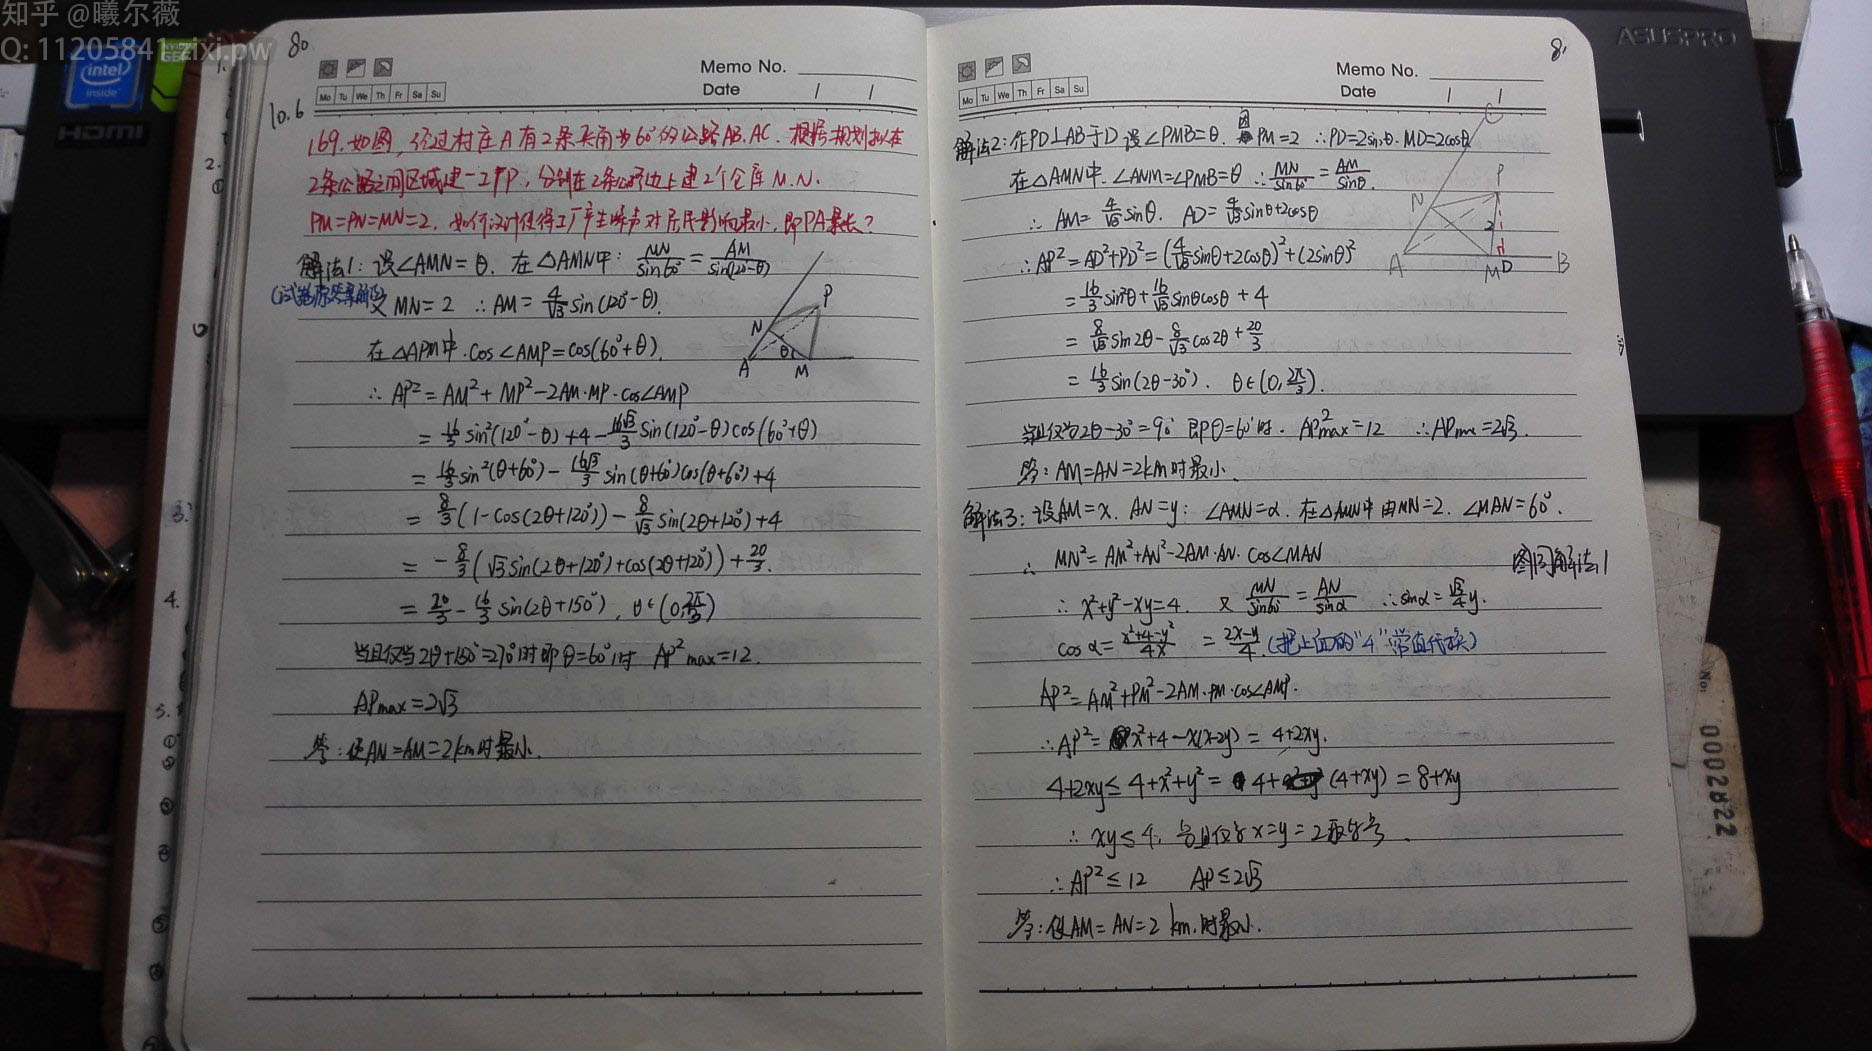 知乎 @曦尔薇
Q: 11205841 zixi.pw
intel inside
HDMI
ASUSPRO
80
Memo No.
Date / /
Mo Tu We Th Fr Sa Su
10.6
169.如图,经过村庄A有2条夹角为60°的公路AB.AC.根据规划拟在
2条公路之间区域建一工厂P,分别在2条公路边上建2个仓库M.N.
PM=PN=MN=2.如何设计使得工厂产生噪声对居民影响最小,即PA最长?
解法1:设∠AMN=θ.在△AMN中:MN/sin60°=AM/sin(120°-θ)
又MN=2 ∴AM=4/√3 sin(120°-θ).
在△APM中.cos∠AMP=cos(60°+θ).
∴AP²=AM²+MP²-2AM·MP·cos∠AMP
=16/3 sin²(120°-θ)+4-16√3/3 sin(120°-θ)cos(60°+θ)
=16/3 sin²(θ+60°)-16√3/3 sin(θ+60°)cos(θ+60°)+4
=8/3(1-cos(2θ+120°))-8/√3 sin(2θ+120°)+4
=-8/3(√3sin(2θ+120°)+cos(2θ+120°))+20/3.
=20/3-16/3 sin(2θ+150°),θ∈(0,2π/3)
当且仅当2θ+150°=270°时即θ=60°时 AP²max=12.
APmax=2√3
答:使AN=AM=2km时最小.
P
N
θ
A
M
81
Memo No.
Date / /
Mo Tu We Th Fr Sa Su
解法2:作PD⊥AB于D设∠PMB=θ.因PM=2 ∴PD=2sinθ.MD=2cosθ
在△AMN中.∠ANM=∠PMB=θ ∴MN/sin60°=AM/sinθ.
∴AM=4/√3 sinθ. AD=4/√3 sinθ+2cosθ
∴AP²=AD²+PD²=(4/√3 sinθ+2cosθ)²+(2sinθ)²
=16/3 sin²θ+16/√3 sinθcosθ+4
=8/√3 sin2θ-8/√3 cos2θ+20/3
=16/3 sin(2θ-30°). θ∈(0,2π/3).
当且仅当2θ-30°=90°即θ=60°时.AP²max=12 ∴APmax=2√3.
答:AM=AN=2km时最小.
C
P
N
2
A
M
D
B
解法3:设AM=x.AN=y:∠AMN=α.在△AMN中由MN=2.∠MAN=60°.
∴MN²=AM²+AN²-2AM·AN·cos∠MAN
图同解法1
∴x²+y²-xy=4.又MN/sin60°=AN/sinα ∴sinα=√3/4 y.
cosα=x²+4-y²/4x=2x-y/4.(把上面的"4"常值代换)
AP²=AM²+PM²-2AM·PM·cos∠AMP.
∴AP²=x²+4-x(x-2y)=4+2xy.
4+2xy≤4+x²+y²=4+(4+xy)=8+xy
∴xy≤4.当且仅当x=y=2取等号.
∴AP²≤12 AP≤2√3
答:使AM=AN=2km.时最小.
No:
0002822